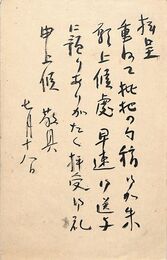 拝呈
重ねて批把の句稿御加朱
願上候處 早速御送子
に預りありがたく拝受御礼
申上候　敬具
七月十八日